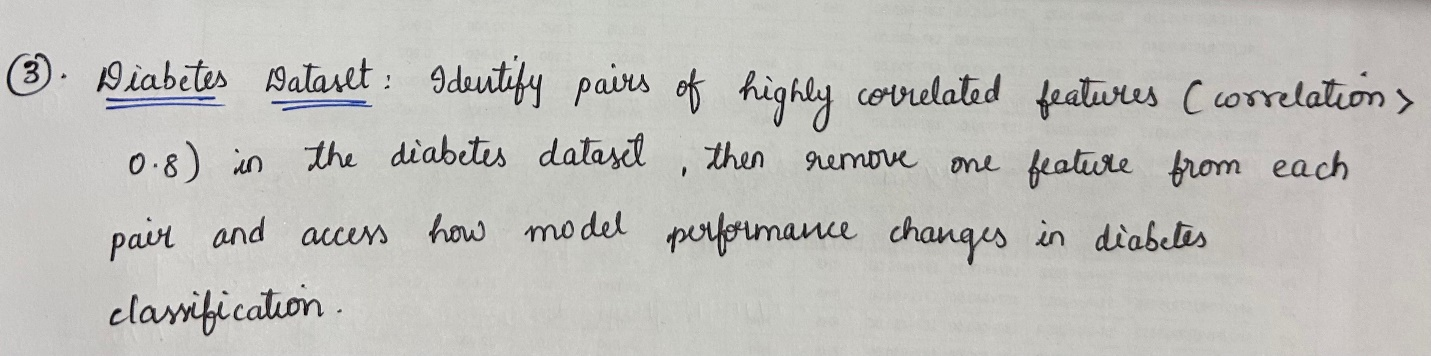 ③. Diabetes Dataset : Identify pairs of highly correlated features (correlation >
0.8) in the diabetes dataset , then remove one feature from each
pair and access how model performance changes in diabetes
classification .